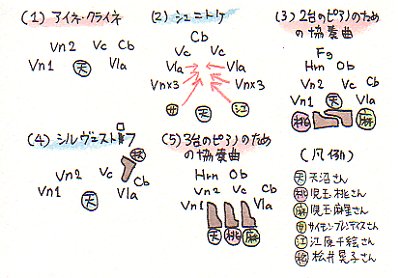 (1) アイネ・クライネ
Vn2 Vc Cb
Vn1 天 Vla
(2) シュニトケ
Cb
Vc Vc
Vla Vla
Vn×3 Vn×3
サ 天 江
(3) 2台のピアノのための協奏曲
Fg
Hrn Ob
Vn2 Vc Cb
Vn1 天 Vla
桃 麻
(4) シルヴェストロフ
Vn2 Vc Cb
Vn1 天 Vla
(5) 3台のピアノのための協奏曲
Hrn Ob
Vn2 Vc Cb
Vn1 Vla
天 桃 麻
(凡例)
天 天沼さん
桃 児玉桃さん
麻 児玉麻里さん
サ サイモン・ブレンディスさん
江 江原千絵さん
松井晃子さん